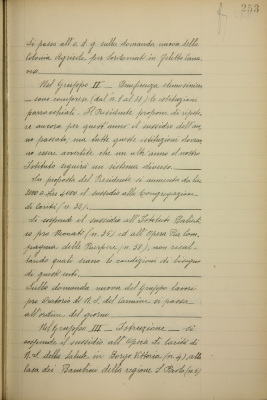 253
si passa all'o. d. g. sulla domanda nuova della
Colonia Agricola per Sordomuti in
Nel Gruppo II - Beneficenza elemosiniera
- sono comprese (dal n. 1 al 38) le istituzioni
parrocchiali. - Il Presidente propone di ripete-
re ancora per quest'anno il sussidio dell'an-
no passato, ma tutte queste istituzioni dovran-
no essere avvertite che un altr'anno il nostro
Istituto seguirà un sistema diverso.
Su proposta del Presidente si aumenta da Lire
3000 a Lire 4000 il sussidio alla Congregazione
di Carità (n. 32).
Si sospende il sussidio all'Istituto
pro Neonati (n. 36) ed all'Opera Pia Com-
pagnia della Purpera (n. 38), non risul-
tando quali siano le condizioni di bisogno
di quest'enti.
Sulla domanda nuova del Gruppo lavori
pro Oratorio di N. S. del Carmine si passa
all'ordine del giorno.
Nel Gruppo III - Istruzione - si
sospende il sussidio all'Opera di Carità di
N. S. della Salute in Borgo Vittoria (n. 4), alla
Casa dei Bambini della regione S. Paolo (n. 6)